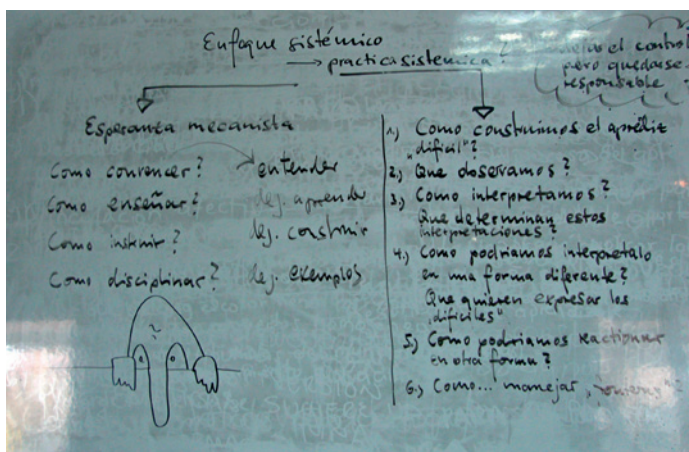 Enfoque sistémico
→ practica sistemica?
el control
pero quedarse
responsable?
Esperanza mecanista
Como convencer?
entender
Como enseñar?
dej. aprender
Como instruir?
dej. construir
Como disciplinar?
dej. exemplos
?
1.) Como construimos el aprédiz
"dificil"?
2.) Que observamos?
3.) Como interpretamos?
Que determinan estos
interpretaciones?
4.) Como podriamos interpretalo
en una forma diferente?
Que quieren expresar los
"dificiles"
5.) Como podriamos reactionar
en otra forma?
6.) Como... manejar